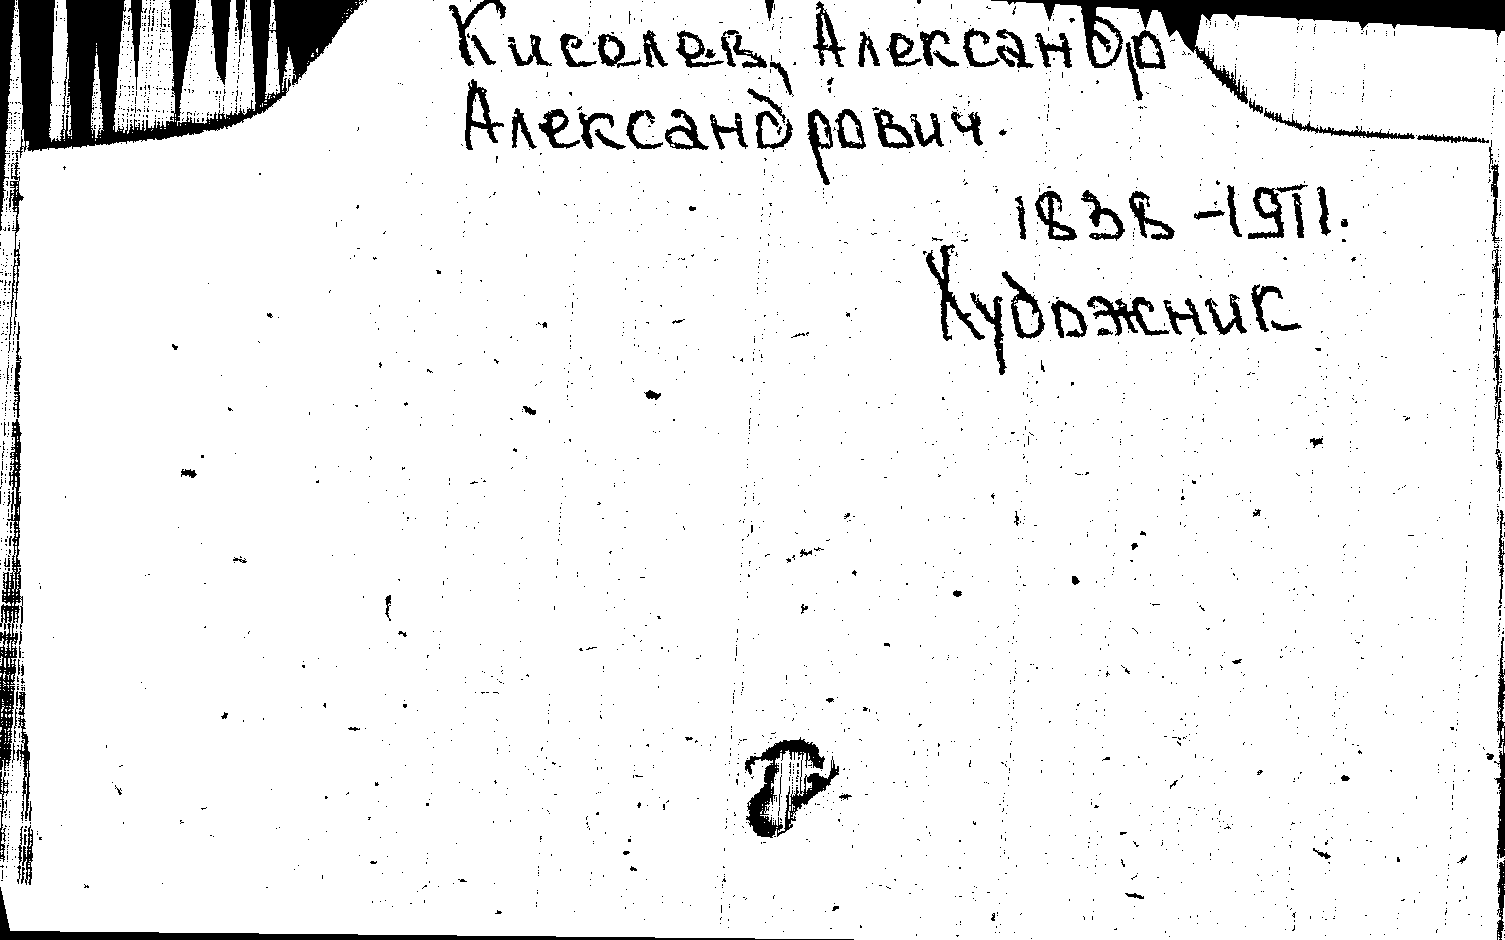 Киселев, Александр
Александрович.
1838-1911.
Художник